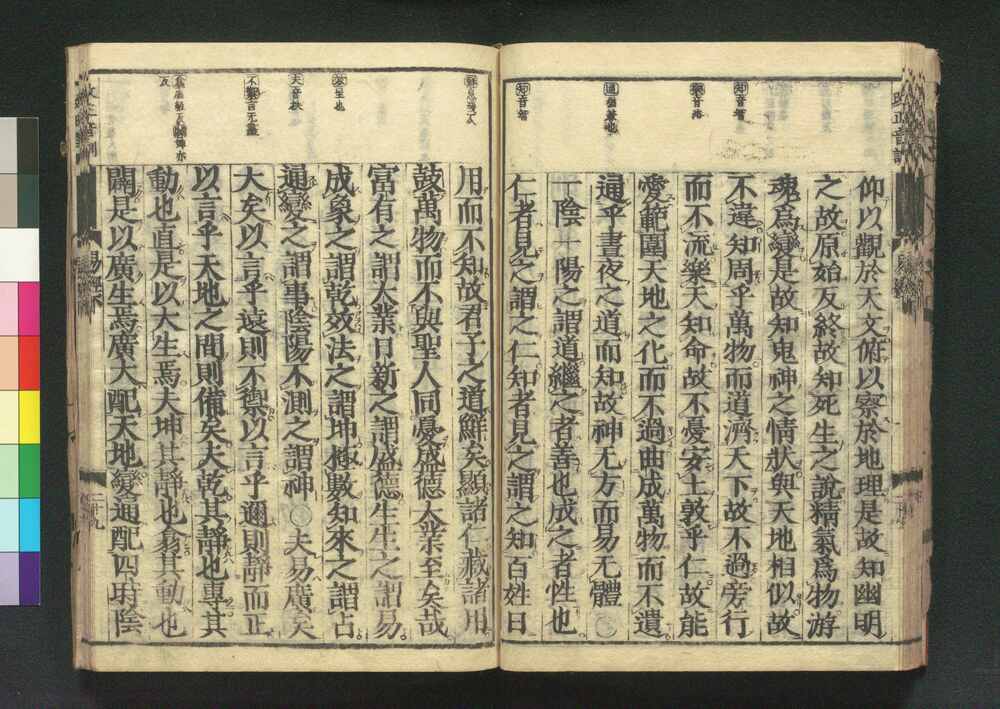 仰以觀於天文俯以察於地理是故知幽明
之故原始反終故知死生之說精氣爲物游
魂爲變是故知鬼神之情狀與天地相似故
不違知周乎萬物而道濟天下故不過旁行
而不流樂天知命故不憂安土敦乎仁故能
愛範圍天地之化而不過曲成萬物而不遺
通乎晝夜之道而知故神无方而易无體〇
一陰一陽之謂道繼之者善也成之者性也
仁者見之謂之仁知者見之謂之知百姓日
知音智
樂音洛
知音智
用而不知故君子之道鮮矣顯諸仁藏諸用
鼓萬物而不與聖人同憂盛德大業至矣哉
富有之謂大業日新之謂盛德生生之謂易
成象之謂乾效法之謂坤極數知來之謂占
通變之謂事陰陽不測之謂神〇夫易廣矣
大矣以言乎遠則不禦以言乎邇則靜而正
以言乎天地之間則備矣夫乾其靜也專其
動也直是以大生焉夫坤其靜也翕其動也
闢是以廣生焉廣大配天地變通配四時陰
夫音扶
不禦言无盡
易經下
二十九